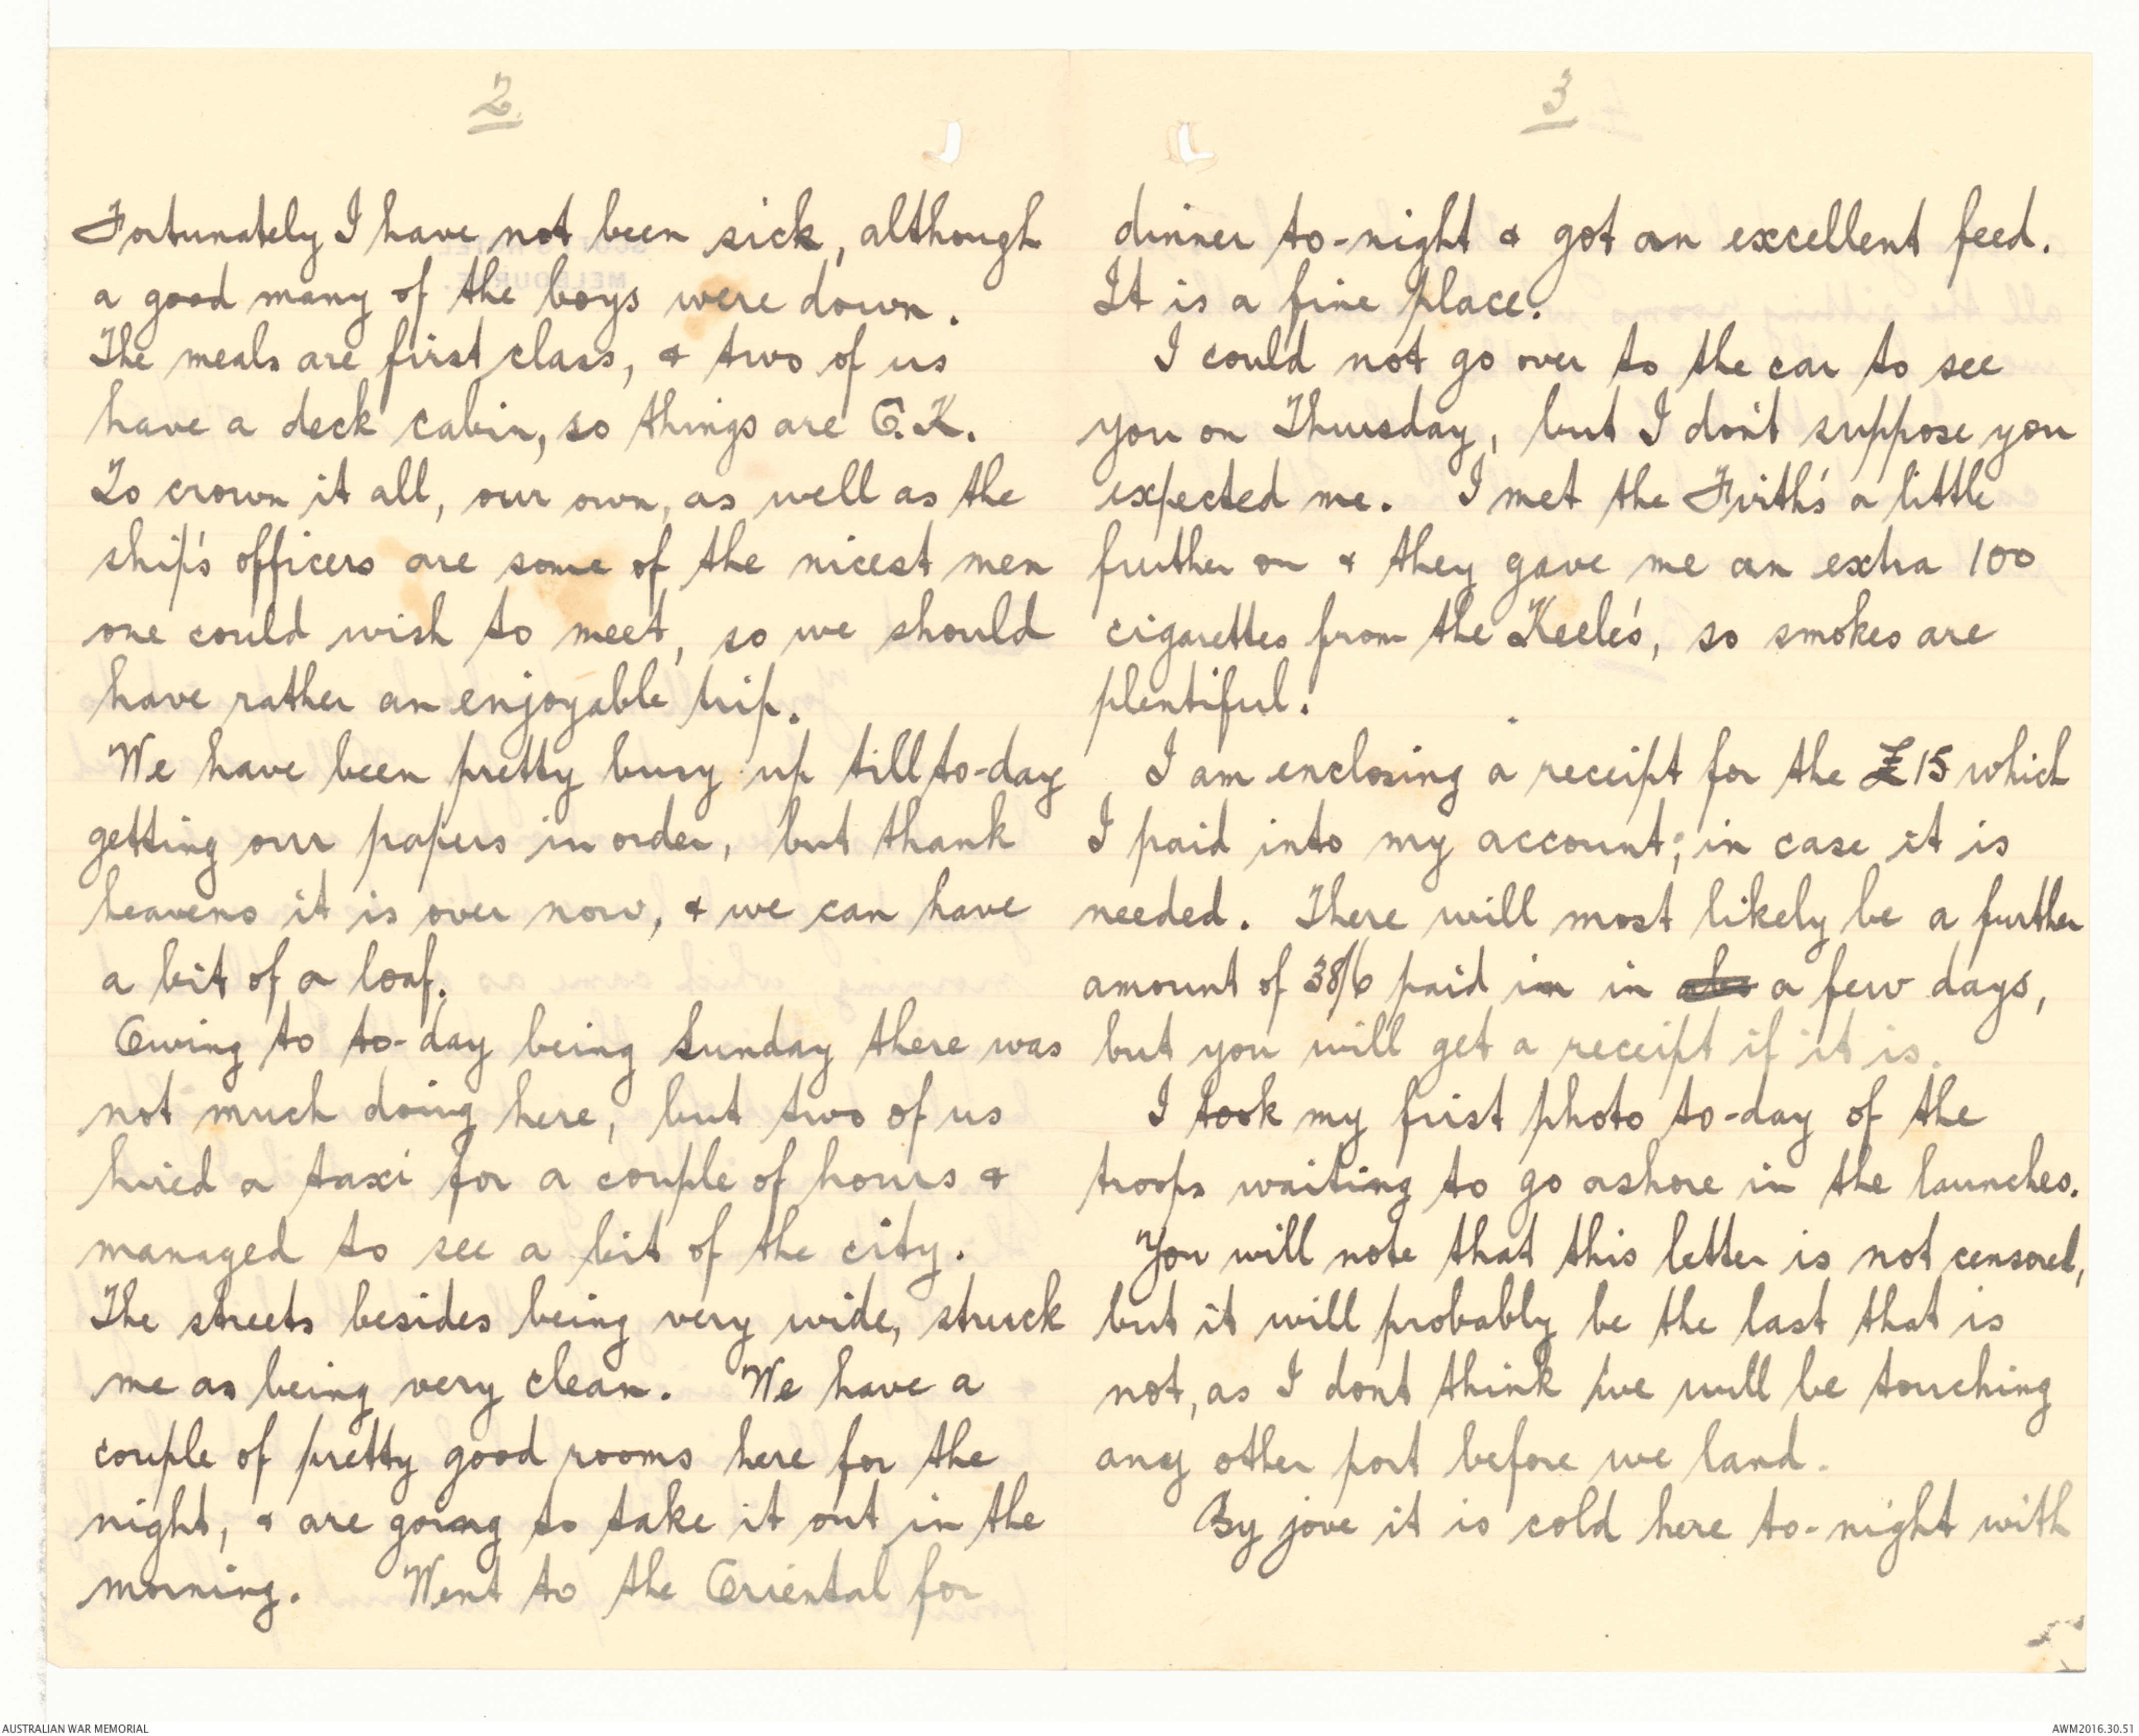 2.
Fortunately I have not been sick, although
a good many of the boys were down.
The meals are first class, & two of us
have a deck cabin, so things are O.K.
To crown it all, our own, as well as the
ship's officers are some of the nicest men
one could wish to meet, so we should
have rather an enjoyable trip.
We have been pretty busy up till to-day
getting our papers in order, but thank
heavens it is over now, & we can have
a bit of a loaf.
Owing to to-day being Sunday there was
not much doing here, but two of us
hired a taxi for a couple of hours &
managed to see a bit of the city.
The streets besides being very wide, struck
me as being very clean. We have a
couple of pretty good rooms here for the
night, & are going to take it out in the
morning. Went to the Oriental for
3
dinner to-night & got an excellent feed.
It is a fine place.
I could not go over to the car to see
you on Thursday, but I don't suppose you
expected me. I met the Firth's a little
further on & they gave me an extra 100
cigarettes from the Keele's, so smokes are
plentiful.
I am enclosing a receipt for the £15 which
I paid into my account; in case it is
needed. There will most likely be a further
amount of 38/6 paid in in a few days,
but you will get a receipt if it is.
I took my first photo to-day of the
troops waiting to go ashore in the launches.
You will note that this letter is not censored,
but it will probably be the last that is
not, as I dont think we will be touching
any other port before we land.
By jove it is cold here to-night with
AUSTRALIAN WAR MEMORIAL
AWM2016.30.51